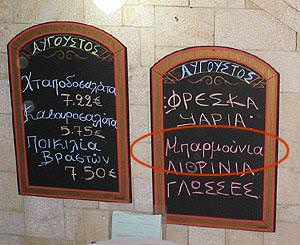 ΑΥΓΟΥΣΤΟΣ
Χταποδοσαλάτα
7.22€
Καβουροσαλάτα
5.75€
ΠΟΙΚΙΛΙΑ
ΒΡΑΣΤΩΝ
7.50€
ΑΥΓΟΥΣΤΟΣ
ΦΡΕΣΚΑ
ΨΑΡΙΑ
Μπαρμούνια
ΛΙΘΡΙΝΙΑ
ΓΛΩΣΣΕΣ